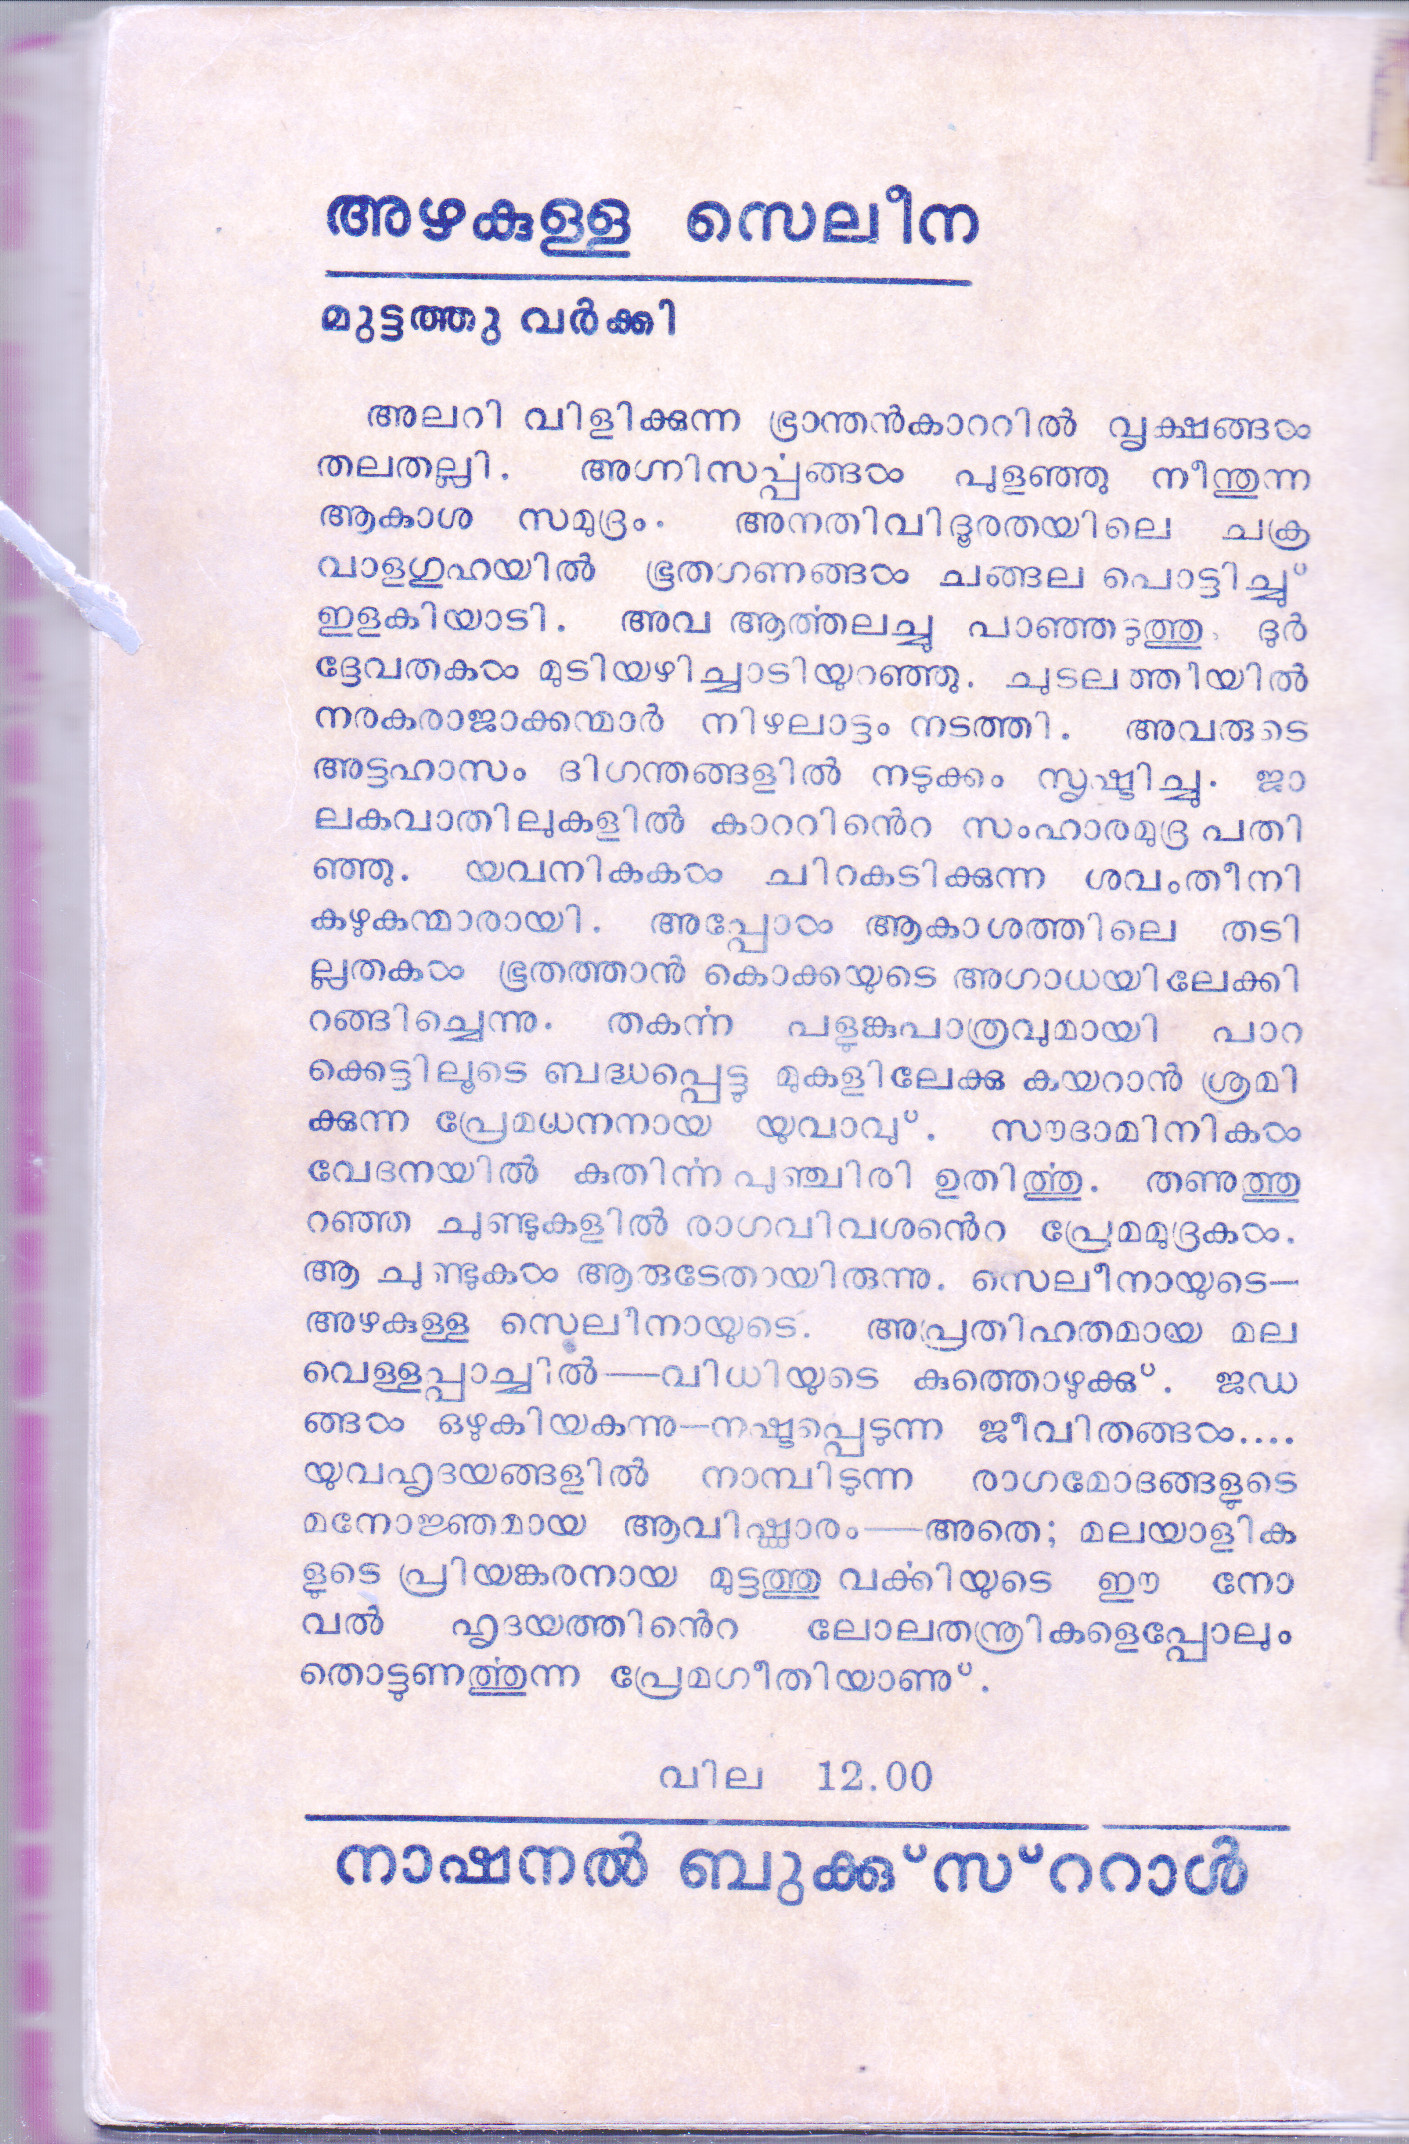 അഴകുള്ള സെലീന
മുട്ടത്തു വർക്കി
അലറി വിളിക്കുന്ന ഭ്രാന്തൻകാററിൽ വൃക്ഷങ്ങൾ
തലതല്ലി. അഗ്നിസൎപ്പങ്ങൾ പുളഞ്ഞു നീന്തുന്ന
ആകാശ സമുദ്രം. അനതിവിദൂരതയിലെ ചക്ര
വാളഗുഹയിൽ ഭൂതഗണങ്ങൾ ചങ്ങല പൊട്ടിച്ചു്
ഇളകിയാടി. അവ ആൎത്തലച്ചു പാഞ്ഞടുത്തു. ദുർ
ദ്ദേവതകൾ മുടിയഴിച്ചാടിയുറഞ്ഞു. ചുടലത്തീയിൽ
നരകരാജാക്കന്മാർ നിഴലാട്ടം നടത്തി. അവരുടെ
അട്ടഹാസം ദിഗന്തങ്ങളിൽ നടുക്കം സൃഷ്ടിച്ചു. ജാ
ലകവാതിലുകളിൽ കാററിൻെറ സംഹാരമുദ്ര പതി
ഞ്ഞു. യവനികകൾ ചിറകടിക്കുന്ന ശവംതീനി
കഴുകന്മാരായി. അപ്പോൾ ആകാശത്തിലെ തടി
ല്ലതകൾ ഭൂതത്താൻ കൊക്കയുടെ അഗാധയിലേക്കി
റങ്ങിച്ചെന്നു. തകൎന്ന പളുങ്കുപാത്രവുമായി പാറ
ക്കെട്ടിലൂടെ ബദ്ധപ്പെട്ടു മുകളിലേക്കു കയറാൻ ശ്രമി
ക്കുന്ന പ്രേമധനനായ യുവാവു്. സൗദാമിനികൾ
വേദനയിൽ കുതിൎന്ന പുഞ്ചിരി ഉതിൎത്തു. തണുത്തു
റഞ്ഞ ചുണ്ടുകളിൽ രാഗവിവശൻെറ പ്രേമമുദ്രകൾ.
ആ ചുണ്ടുകൾ ആരുടേതായിരുന്നു. സെലീനായുടെ—
അഴകുള്ള സെലീനായുടെ. അപ്രതിഹതമായ മല
വെള്ളപ്പാച്ചിൽ——വിധിയുടെ കുത്തൊഴുക്കു്. ജഡ
ങ്ങൾ ഒഴുകിയകന്നു—നഷ്ടപ്പെടുന്ന ജീവിതങ്ങൾ....
യുവഹൃദയങ്ങളിൽ നാമ്പിടുന്ന രാഗമോദങ്ങളുടെ
മനോജ്ഞമായ ആവിഷ്ക്കാരം——അതെ; മലയാളിക
ളുടെ പ്രിയങ്കരനായ മുട്ടത്തു വൎക്കിയുടെ ഈ നോ
വൽ ഹൃദയത്തിൻെറ ലോലതന്ത്രികളെപ്പോലും
തൊട്ടുണൎത്തുന്ന പ്രേമഗീതിയാണു്.
വില 12.00
നാഷനൽ ബുക്ക്സ്ററാൾ